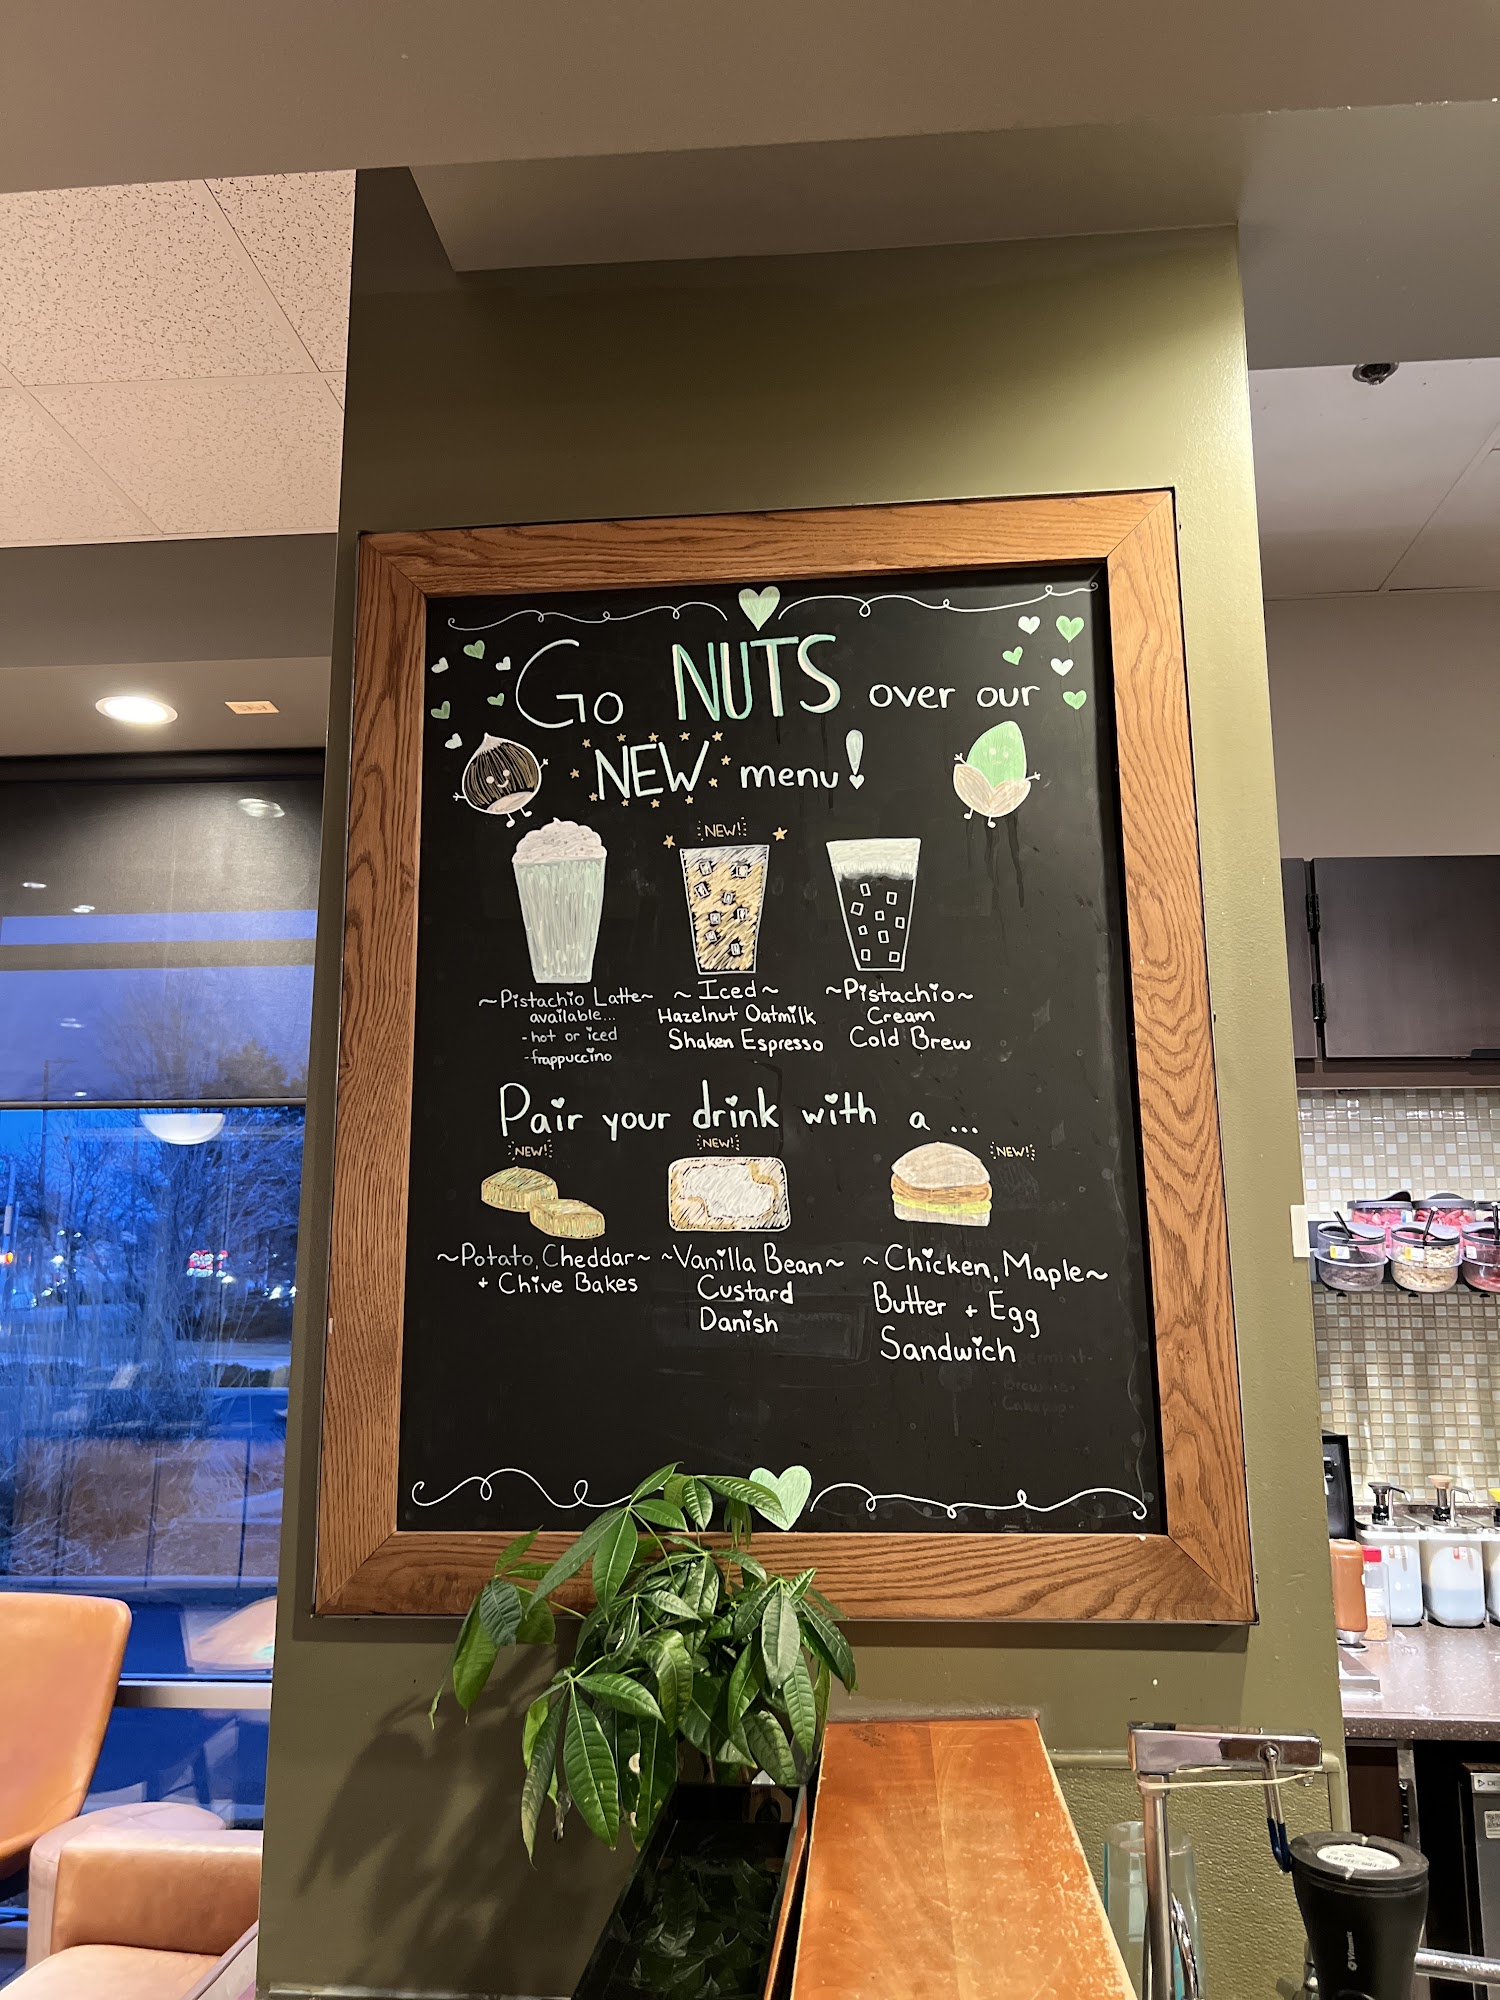 Go NUTS over our
NEW menu!
NEW!
~Pistachio Latte~
available...
-hot or iced
-frappuccino
~Iced~
Hazelnut Oatmilk
Shaken Espresso
~Pistachio~
Cream
Cold Brew
Pair your drink with a ...
NEW!
NEW!
NEW!
~Potato, Cheddar~
+ Chive Bakes
~Vanilla Bean~
Custard
Danish
~Chicken, Maple~
Butter + Egg
Sandwich
Vitamix